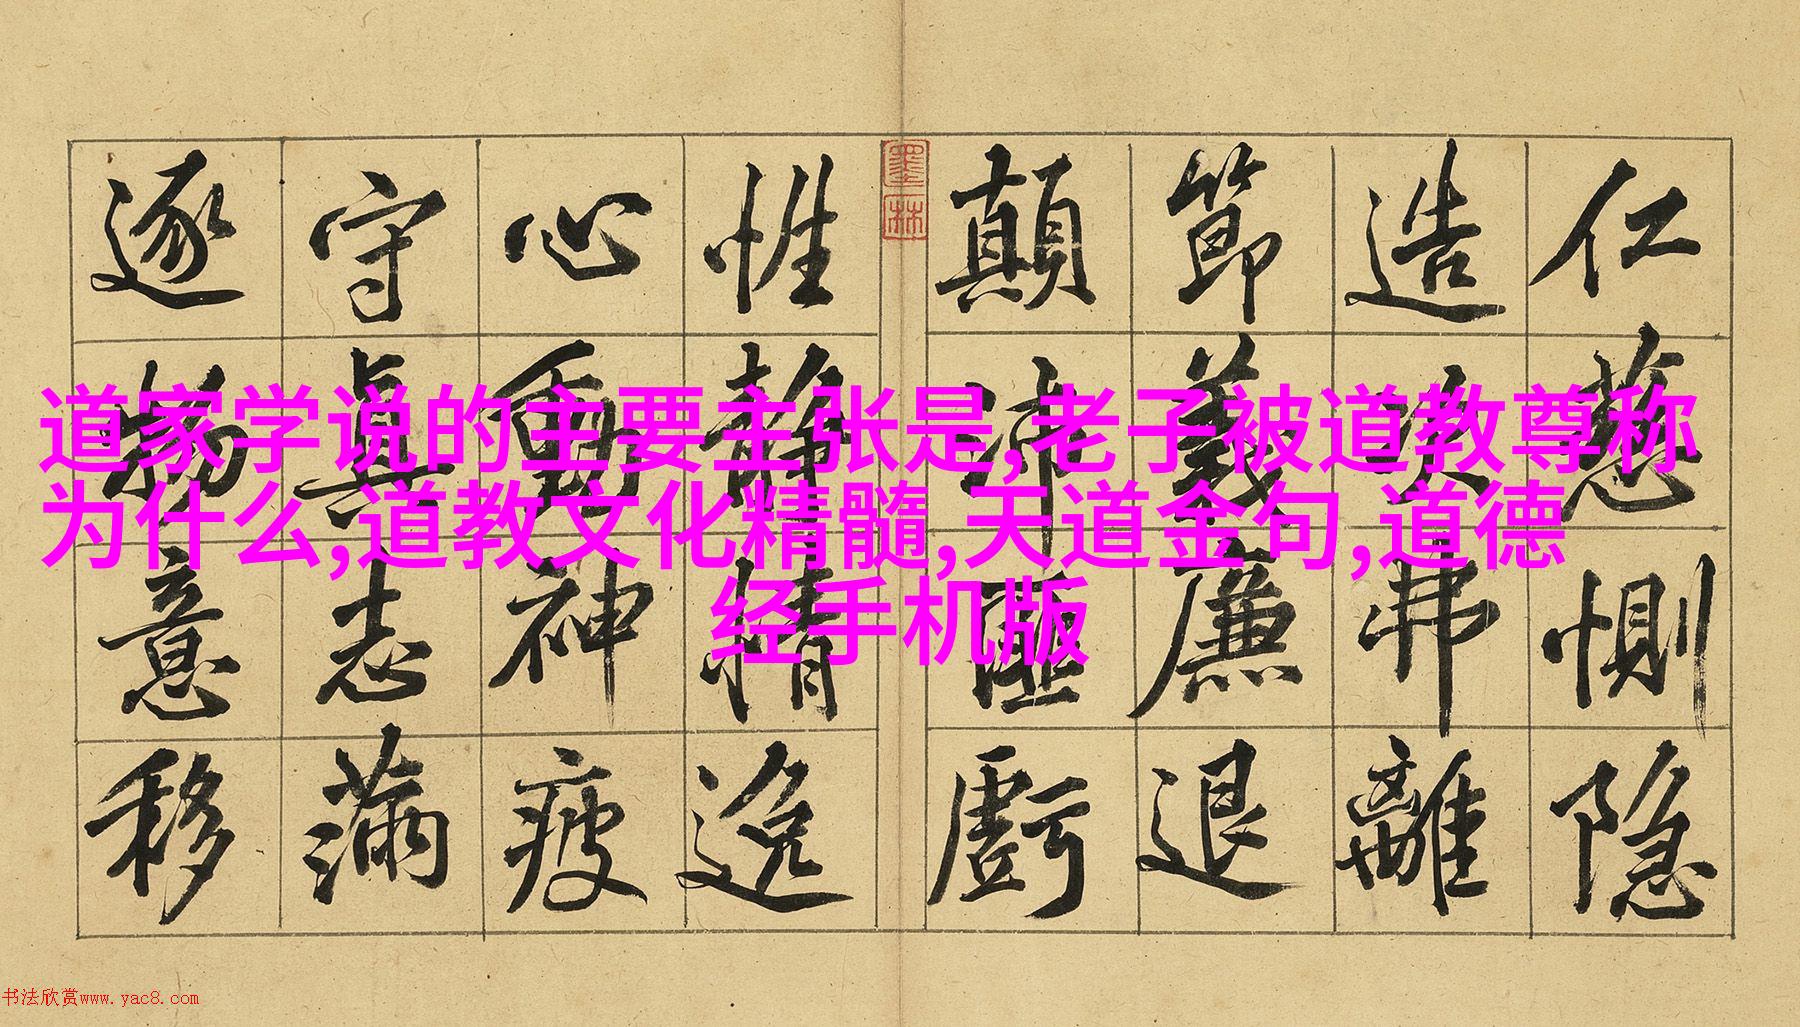 道家学说的主要主张是,老子被道教尊称
为什么,道教文化精髓,天道金句,道德
经手机版
仁慈惻隱
造次弗離
節義廉退
顛沛匪虧
性靜情逸
心動神疲
守真志滿
逐物意移
墨林
书法欣赏www.yac8.com